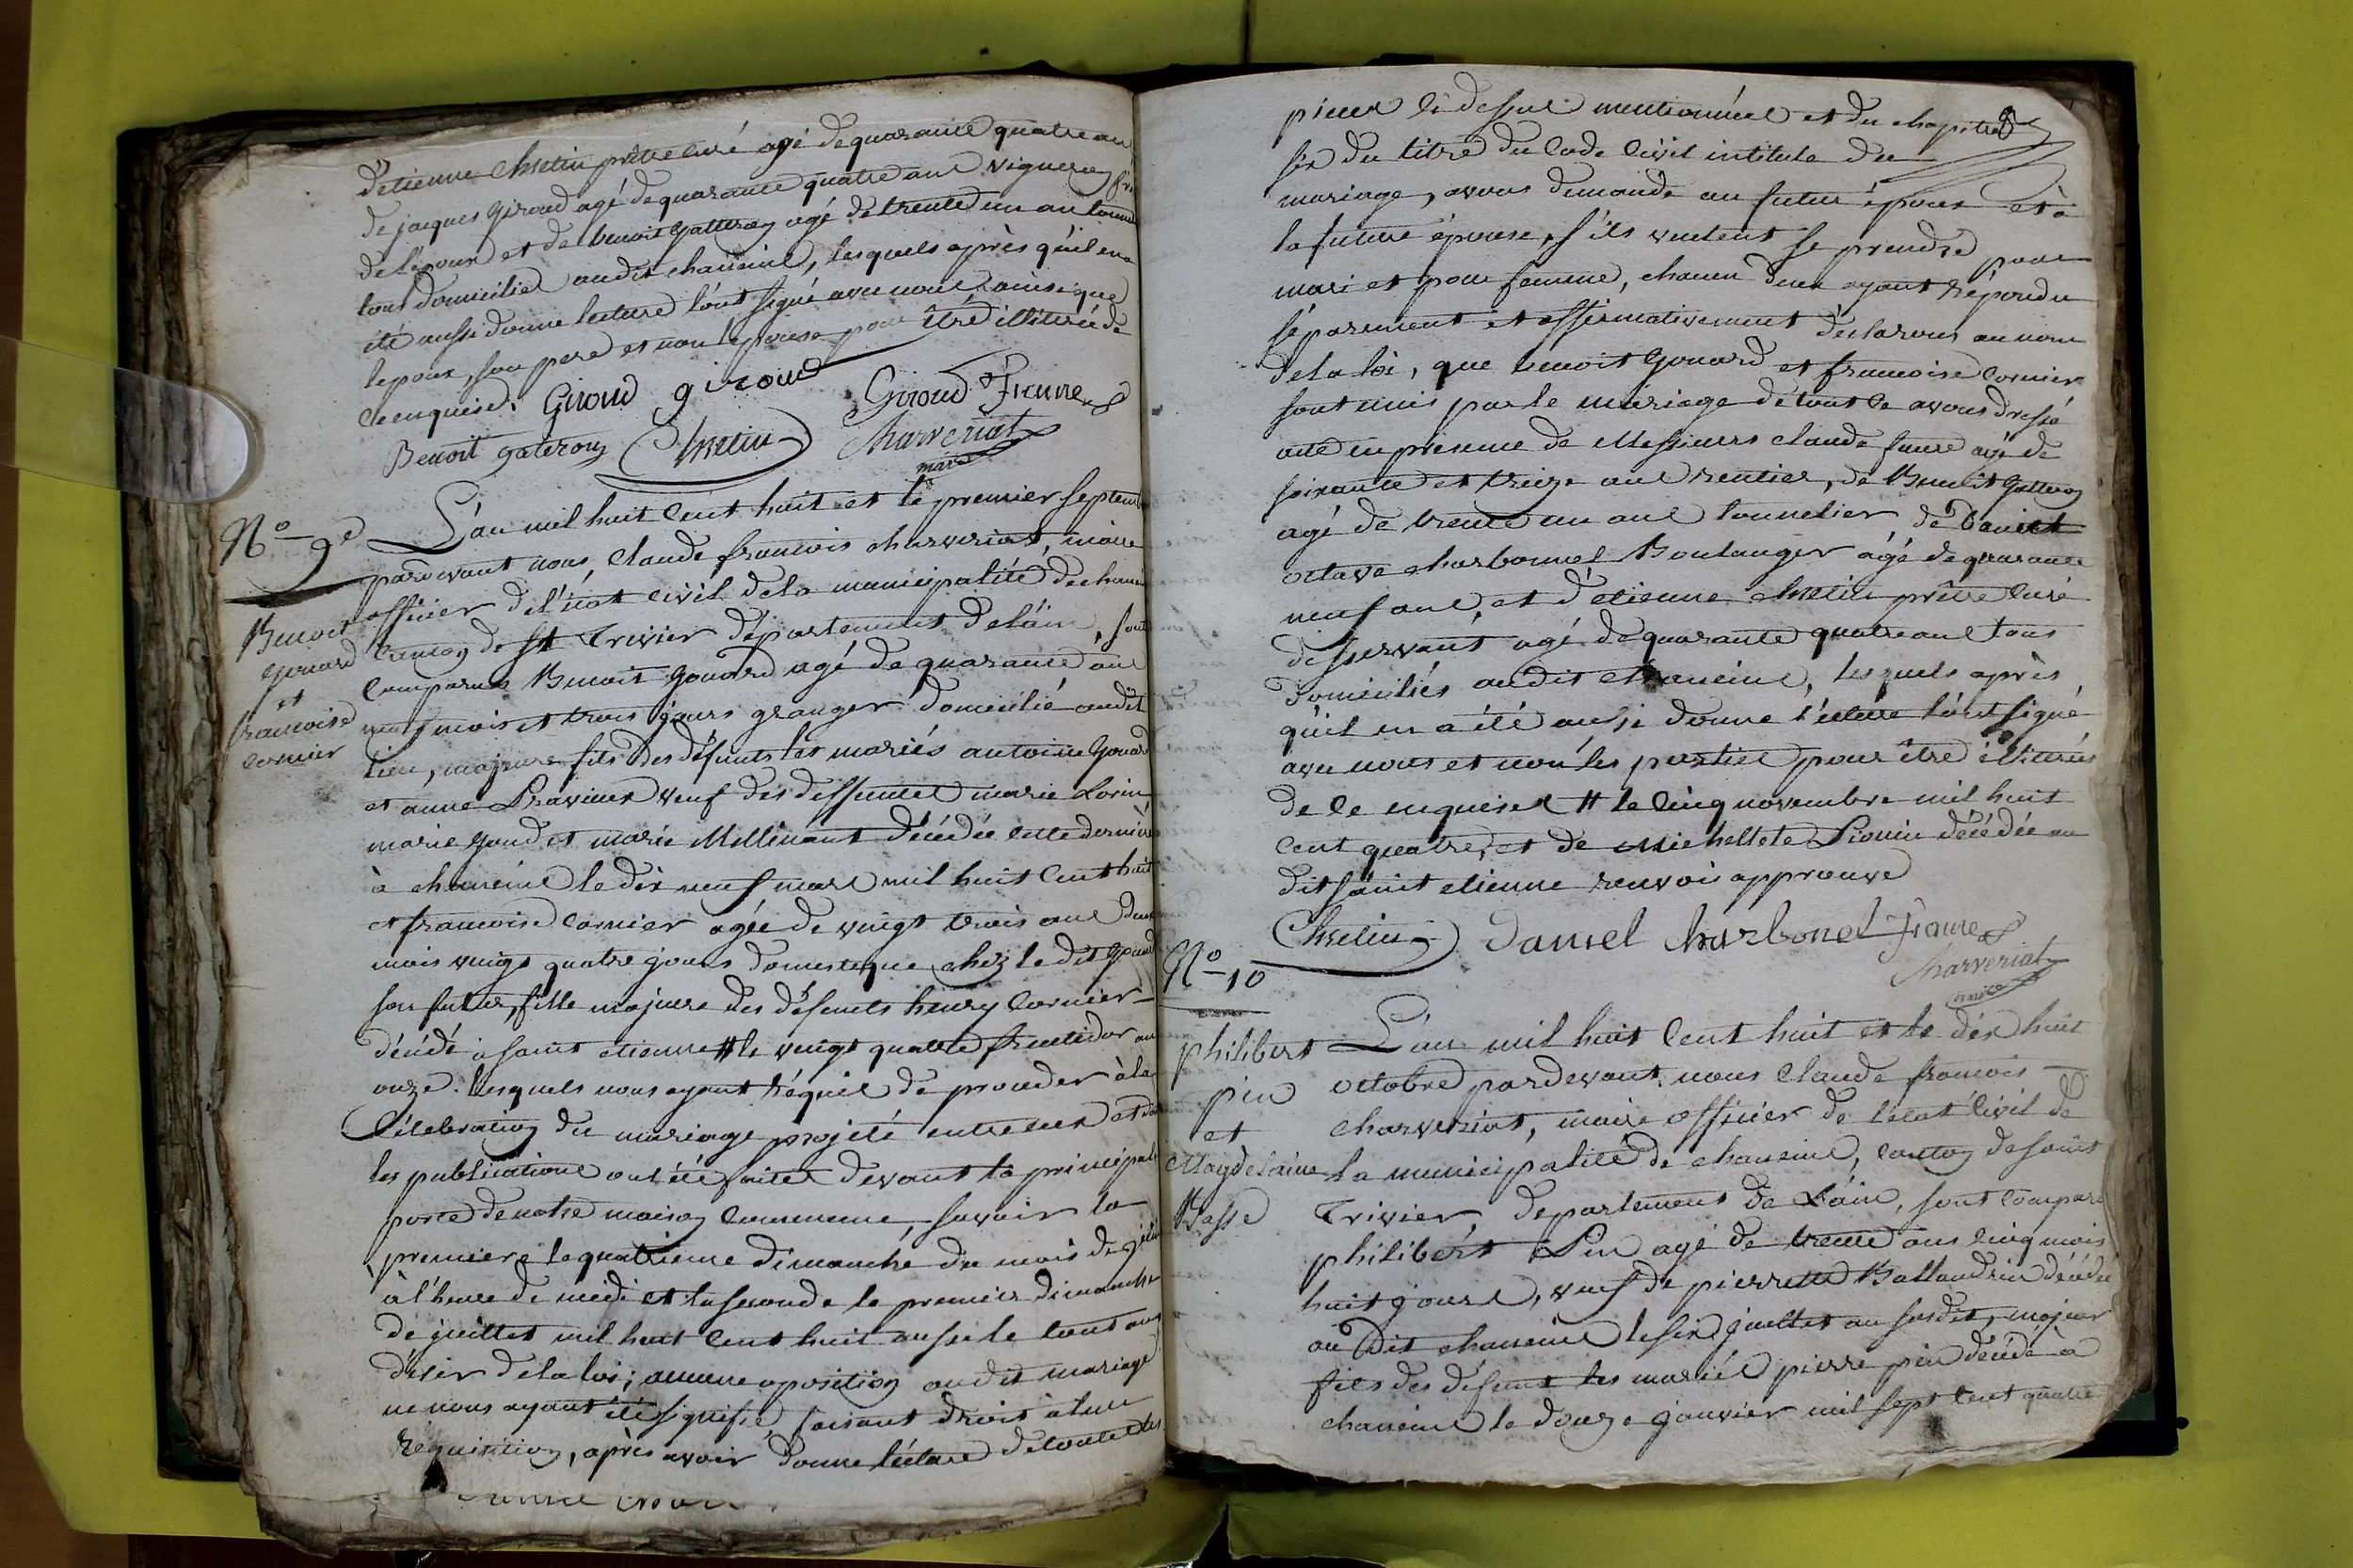 d'etienne prêtre curé agé de quarante quatre ans
de jacques Giroud agé de quarante quatre ans vigneron
de l'epoux et de benoit gatteron agé de trente un an
tous domicilié audit chaneins, lesquels après qu'il en a
été aussi donne lecture l'ont signé avec nous ainsi que
lepoux, son pere et non l'epouse pour être illiterée de
ce enquise. Giroud giroud Giroud
Benoit gateron Charveriat
maire
N° 9e
L'an mil huit cent huit et le premier septembre
pardevant nous, claude francois charveriat, maire
officier de l'état civil de la municipalité de
canton de st Trivier département de l'ain, sont
comparus Benoit gouard agé de quarante ans
neuf mois et trois jours granger domicilié audit
lieu, majeur fils des défunts les mariés antoine gouard
et anne veuf des deffuntes marie
marie et marie décédée cette dernière
à chaneins le dix neuf mars mil huit cent huit
et francoise cornier agée de vingt trois ans deux
mois vingt quatre jours domestique chez le dit gouard
son futur, fille majeure des défunts henry cornier
décédé à saint etienne # le vingt quatre fructidor an
onze. lesquels nous ayant réquis de proceder à la
célébration du mariage projeté entre eux et dont
les publications ont été faites devant la principale
porte de notre maison commune, savoir la
premiere le quatrieme dimanche du mois de
à l'heure de midi et la seconde le premier dimanche
de juillet mil huit cent huit aussi le tout au
désir de la loi; aucune oposition audit mariage
ne nous ayant été signifié, faisant droit à leur
réquisition, après avoir donne lecture de toutes les
Benoit
gouard
et
francoise
cornier
8
pieces ci dessus mentionnées et du chapitre
six du titre du code civil intitule du
mariage, avons demandé au futur époux et à
la future épouse, s'ils veulent se prendre pour
mari et pour femme, chacun d'eux ayant répondu
séparement et affirmativement déclarons au nom
de la loi, que benoit gouard et francoise cornier
sont unis par le mariage de tout ce avons dressé
acte en présence de Messieurs claude agé de
soixante et treize ans rentier, de Benoit gatteron
agé de trente un ans tonnelier, de
octave charbonnel Boulanger agé de quarante
neuf ans, et d'etienne prêtre curé
desservant agé de quarante quatre ans tous
domiciliés audit chaneins, lesquels après
qu'il en a été aussi donne lécture l'ont signé
avec nous et non les parties pour être illiterés
de ce enquises # le cinq novembre mil huit
cent quatre, et de Michellete décédée au
dit saint etienne renvoi approuve
Daniel charbonel Charveriat
maire
N° 10
L'an mil huit cent huit et le dix huit
octobre pardevant nous claude francois
charveriat, maire officier de l'état civil de
la municipalité de chaneins, canton de saint
Trivier, departement de L'ain, sont comparu
philibert Pin agé de trente ans cinq mois
huit jours, veuf de pierrette Ballandrin décédée
au dit chaneins le six juillet an susdit, majeur
fils des défunt les mariés pierre pin décédé à
chaneins le douze janvier mil sept cent quatre
philibert
pin
et
Magdelaine
Basse